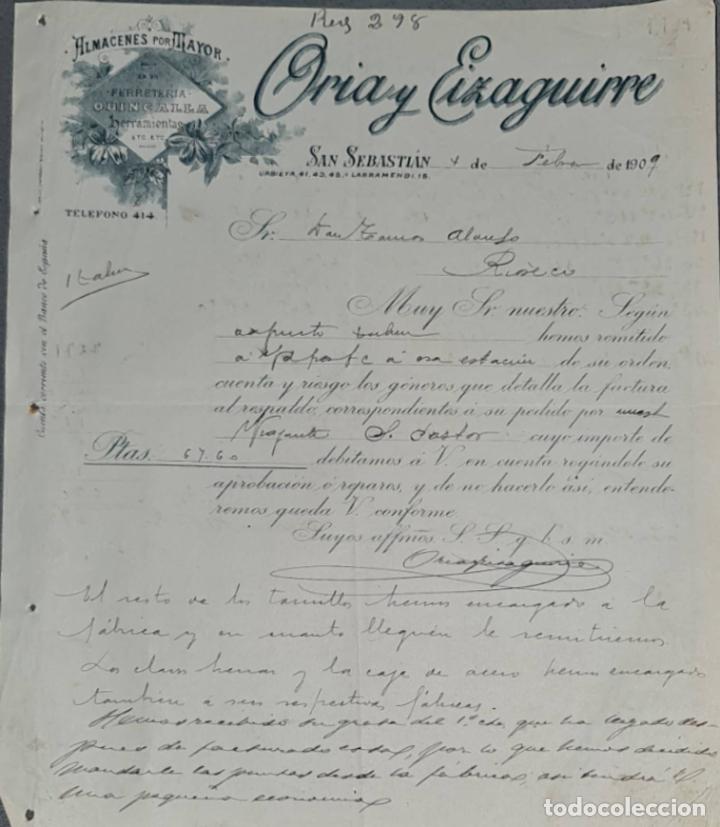 Reg 298
ALMACENES POR MAYOR
EN DE
FERRETERIA
QUINCALLA
herramientas
ETC. ETC.
Oria y Eizaguirre
SAN SEBASTIÁN 4 de Febro de 1909
URBIETA, 41, 43, 45, Y LARRAMENDI, 15.
TELÉFONO 414
Cuenta corriente con el Banco de España
Sr. Don Alonso
Rioseco
Muy Sr. nuestro: Según
hemos remitido
á esa estación de su orden,
cuenta y riesgo los géneros que detalla la factura
al respaldo, correspondientes á su pedido por nuest
Viajante S. Pastor cuyo importe de
Ptas. 67.60 debitamos á V. en cuenta rogándole su
aprobación ó reparos, y de no hacerlo así, entende-
remos queda V. conforme.
Suyos affmos. S. S. q b s m
Oria y Eizaguirre
El resto de los tornillos hemos encargado á la
fábrica y en cuanto lleguen le remitiremos.
Los clavos herrar y la caja de acero hemos encargado
tambien á sus respectivas fábricas.
Hemos recibido su grata del 1º cte, que ha llegado des-
pues de facturado todo, por lo que hemos decidido
mandarle las puntas desde la fábrica, asi tendrá V.
una pequeña economia
todocoleccion